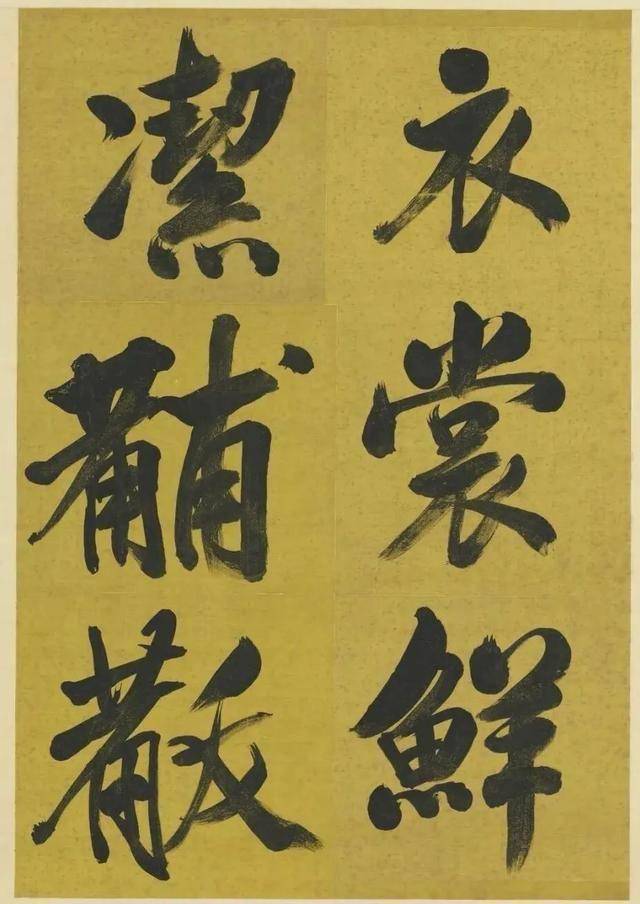 衣裳鮮
潔黼黻